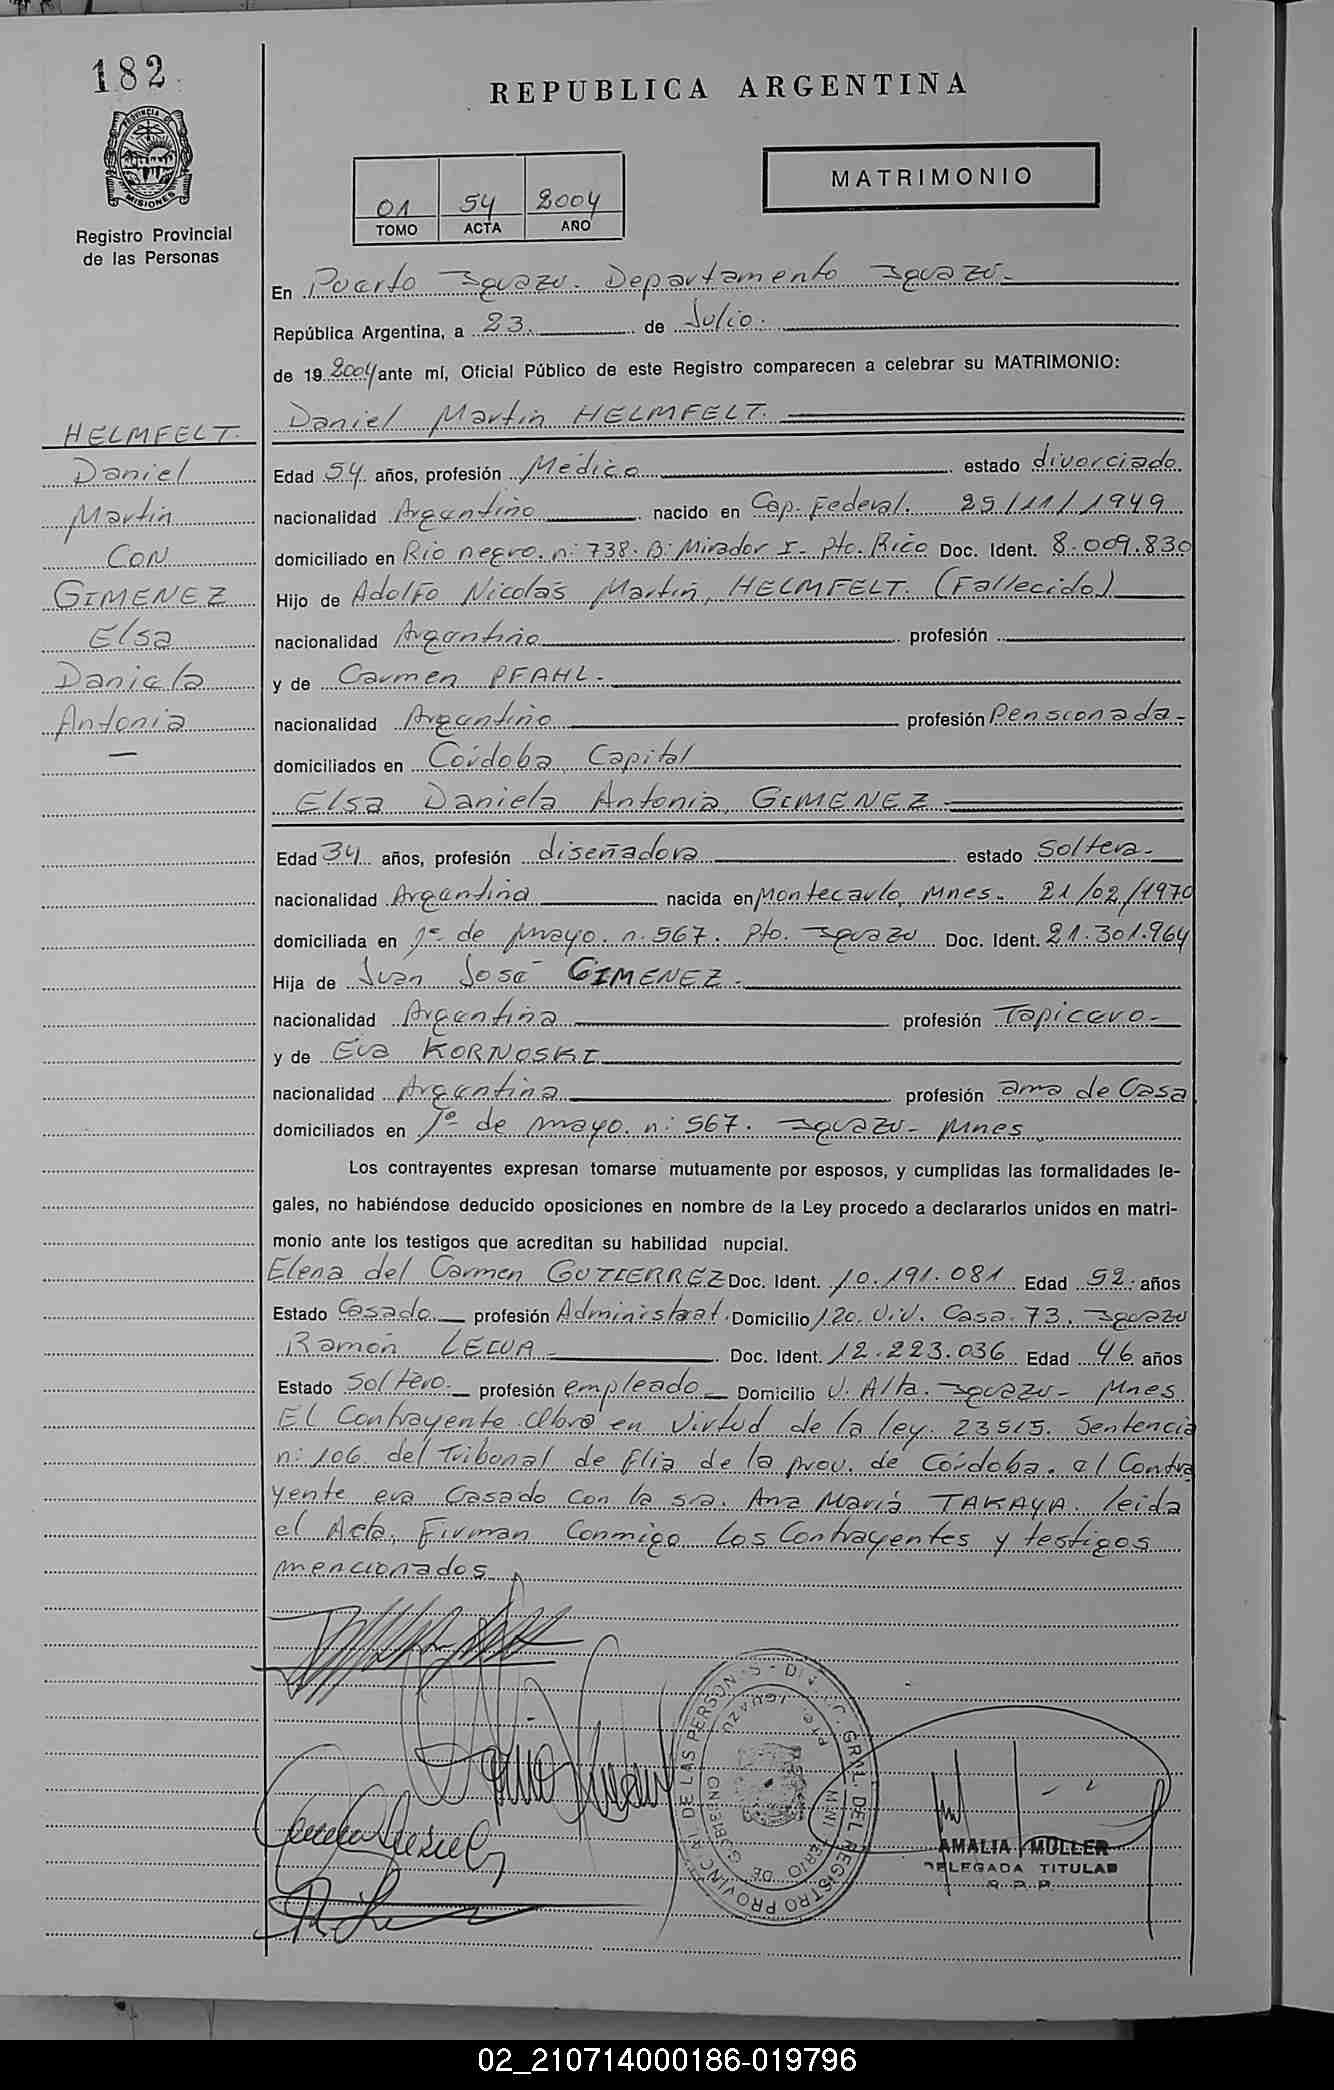 182
PROVINCIA DE
MISIONES
Registro Provincial
de las Personas
REPUBLICA ARGENTINA
MATRIMONIO
01 54 2004
TOMO ACTA AÑO
En Puerto Iguazú. Departamento Iguazú.-
República Argentina, a 23. de Julio.
de 19 2004 ante mí, Oficial Público de este Registro comparecen a celebrar su MATRIMONIO:
Daniel Martin HELMFELT.
HELMFELT.
Daniel
Martin
CON
GIMENEZ
Elsa
Daniela
Antonia
—
Edad 54 años, profesión Médico estado divorciado
nacionalidad Argentino nacido en Cap. Federal. 29/11/1949
domiciliado en Rio negro. n: 738. B: Mirador I- Pto. Rico Doc. Ident. 8.009.830
Hijo de Adolfo Nicolás Martin, HELMFELT. (Fallecido)
nacionalidad Argentino profesión
y de Carmen PFAHL-
nacionalidad Argentino profesión Pensionada-
domiciliados en Córdoba Capital
Elsa Daniela Antonia GIMENEZ
Edad 34 años, profesión diseñadora estado Soltera-
nacionalidad Argentina nacida en Montecarlo, Mnes. 21/02/1970
domiciliada en 1º de mayo. n: 567. Pto. Iguazu Doc. Ident. 21.301.964
Hija de Juan José GIMENEZ.
nacionalidad Argentina profesión Tapicero-
y de Eva KORNOSKI
nacionalidad Argentina profesión ama de Casa
domiciliados en 1º de mayo. n: 567. Iguazu- Mnes
Los contrayentes expresan tomarse mutuamente por esposos, y cumplidas las formalidades le-
gales, no habiéndose deducido oposiciones en nombre de la Ley procedo a declararlos unidos en matri-
monio ante los testigos que acreditan su habilidad nupcial.
Elena del Carmen GUTIERREZ Doc. Ident. 10.191.081 Edad 52 años
Estado Casado profesión Administrat. Domicilio 120. Viv. Casa. 73. Iguazu
Ramón LEIVA Doc. Ident. 12.223.036 Edad 46 años
Estado Soltero. profesión empleado Domicilio V. Alta. Iguazu- Mnes
El Contrayente obra en Virtud de la ley. 23515. Sentencia
n: 106. del Tribunal de Flia de la prov. de Córdoba. el Contra
yente era Casado con la sra. Ana María TAKAYA. leida
el Acta, Firman Conmigo los Contrayentes y testigos
mencionados
GRAL. DEL REGISTRO PROVINCIAL DE LAS PERSONAS
MINISTERIO DE GOBIERNO
IGUAZU
AMALIA MÜLLER
DELEGADA TITULAR
R.P.P.
02_210714000186-019796